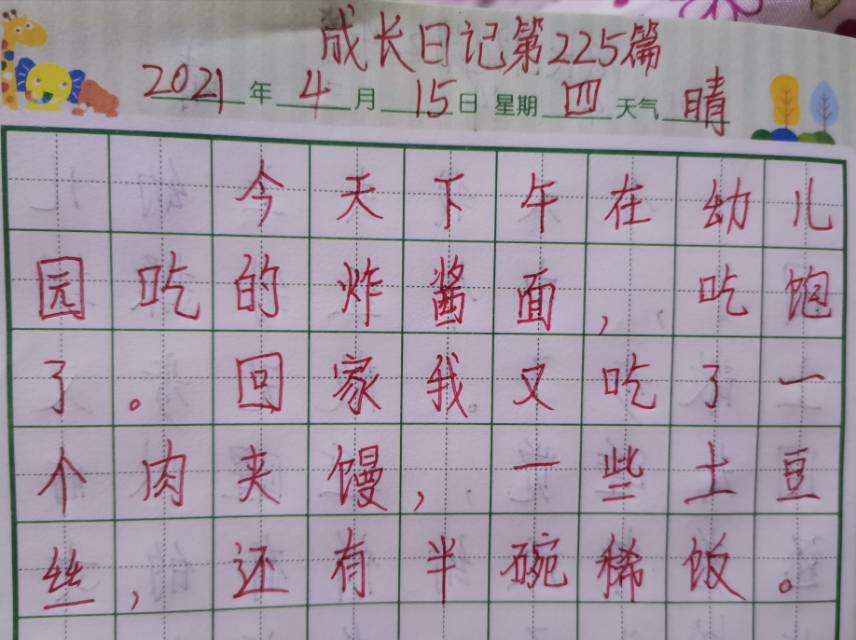 成长日记第225篇
2021年4月15日 星期四天气晴
今天下午在幼儿
园吃的炸酱面，吃饱
了。回家我又吃了一
个肉夹馍，一些土豆
丝，还有半碗稀饭。